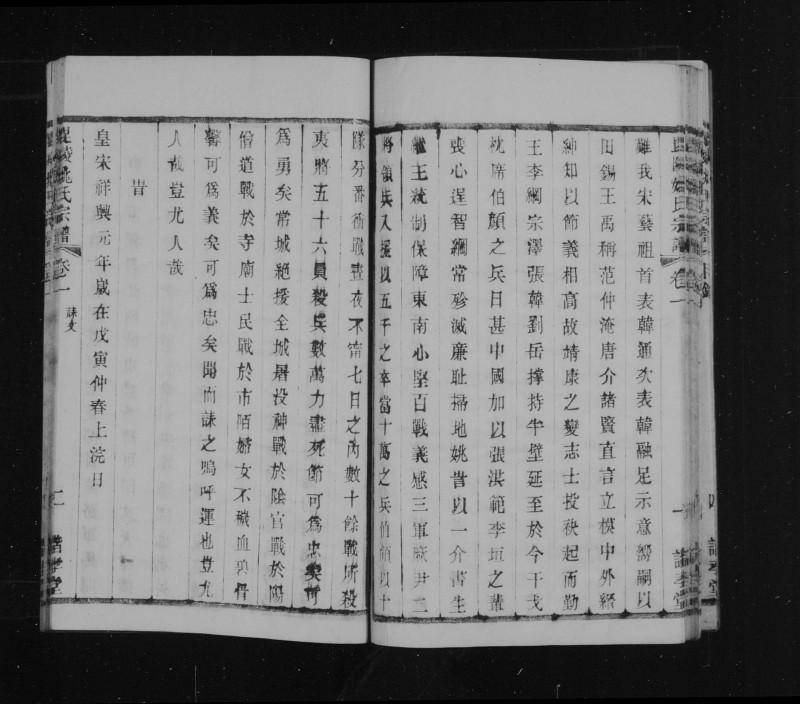 離我宋藝祖首表韓通次表韓融足示意嚮嗣以
田錫王禹稱范仲淹唐介諸賢直言立模中外縉
紳知以節義相高故靖康之變志士投袂起而勤
王李綱宗澤張韓劉岳撐持半壁延至於今干戈
枕席伯顏之兵日甚中國加以張洪範李垣之輩
喪心逞智綱常殄滅廉耻掃地姚訔以一介書生
主統制保障東南心堅百戰義感三軍厥尹二
將領兵入援以五千之卒當十萬之兵伯顏以十
隊分番衝戰晝夜不甯七日之內數十餘戰所殺
夷將五十六員殺兵數萬力盡死節可為忠矣可
為勇矣常城絕援全城屠没神戰於陰官戰於陽
僧道戰於寺廟士民戰於市陌婦女不穢血碧骨
馨可為義矣可為忠矣聞而誄之嗚呼運也豈尤
人哉豈尤人哉
旹
皇宋祥興元年歲在戊寅仲春上浣日
姚氏宗譜 卷一 誄文 二